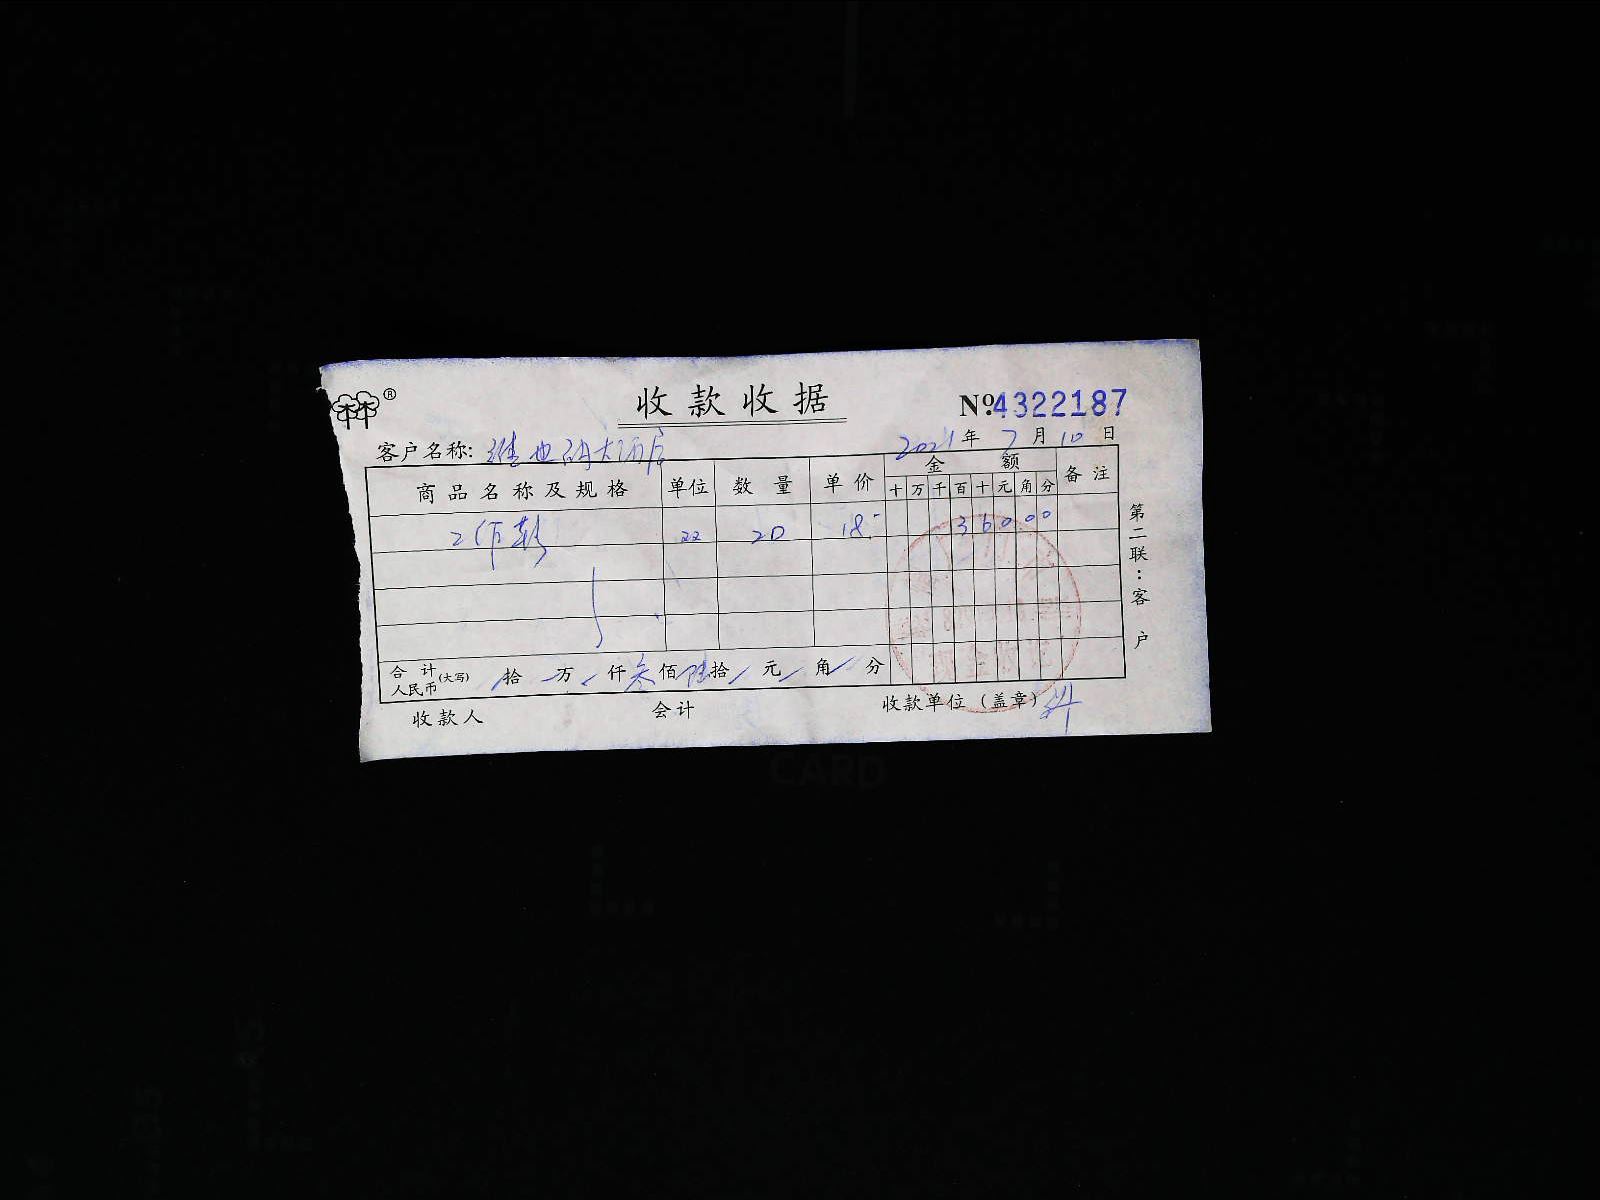 ®
收款收据
№4322187
客户名称: 维也纳大酒店
2021年7月10日
商品名称及规格 单位 数量 单价 金额 备注
十万千百十元角分
20 18 36000
合计人民币(大写) 拾万仟叁佰陆拾元角分
收款人 会计 收款单位(盖章)
第二联:客户
CARD